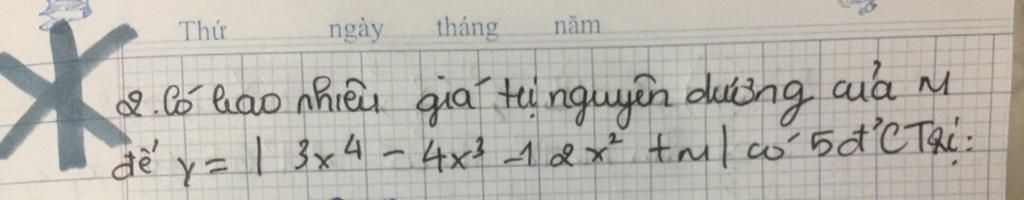 Thứ ngày tháng năm
2. Có bao nhiêu giá trị nguyên dương của M
để y = | 3x⁴ - 4x³ - 12x² + M | có 5 đ'CTRị: